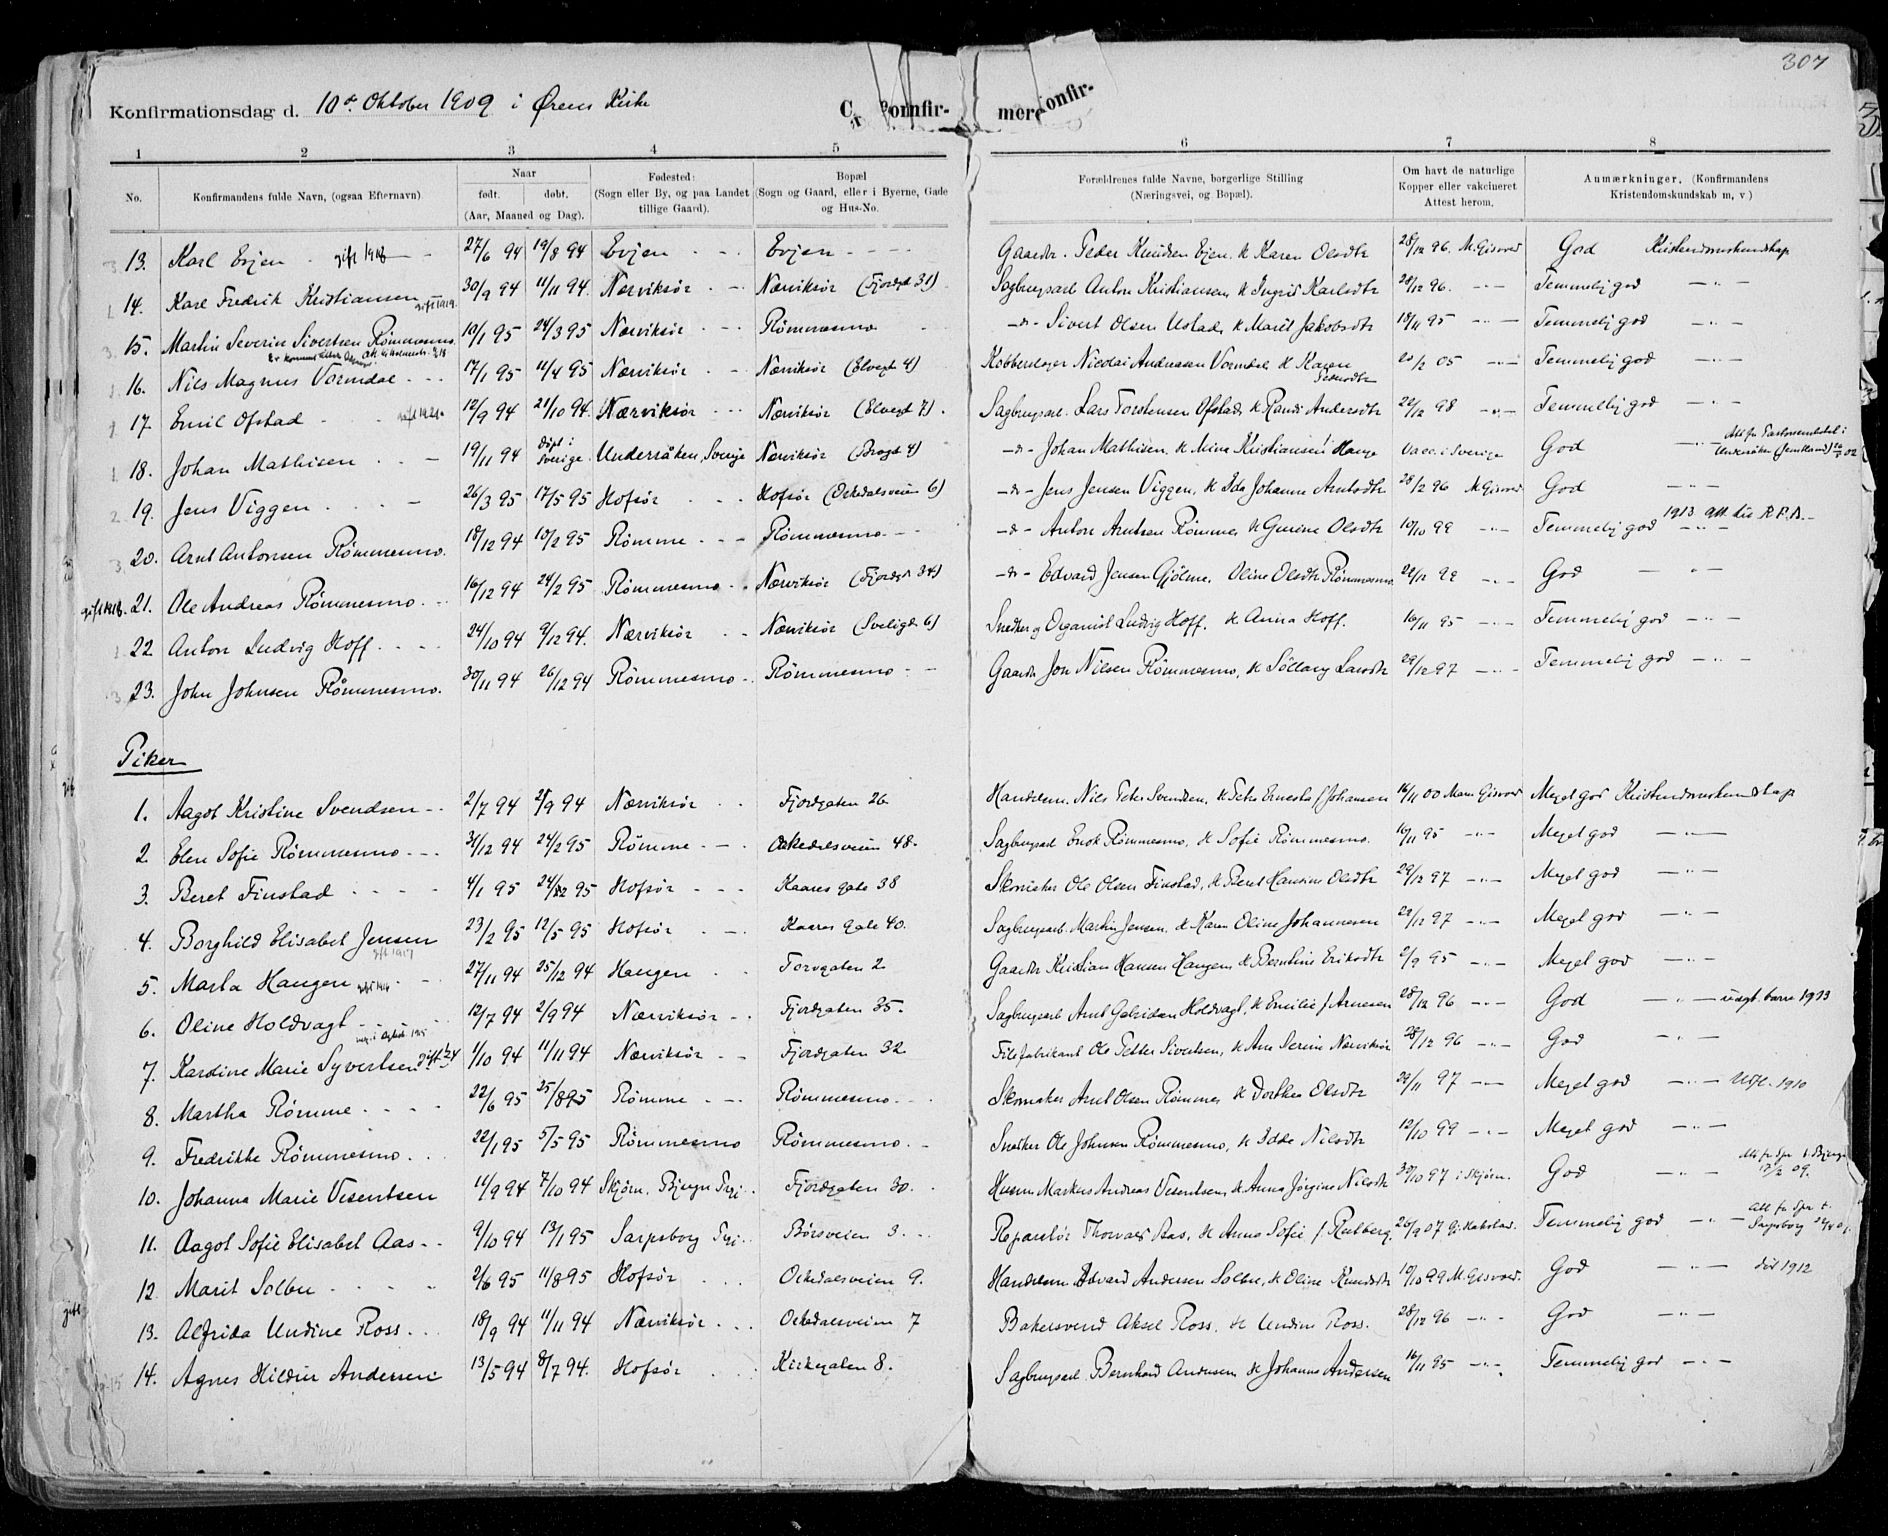 307
Konfirmationsdag d. 10de Oktober 1909 i Ørens Kirke
1 2 3 4 5 6 7 8
No. Konfirmandens fulde Navn, (ogsaa Efternavn) Naar født. døbt. (Aar, Maaned og Dag). Fødested: (Sogn eller By, og paa Landet tillige Gaard). Bopæl (Sogn og Gaard, eller i Byerne, Gade og Hus-No. Forældrenes fulde Navne, borgerlige Stilling (Næringsvei, og Bopæl). Om havt de naturlige Kopper eller vakcineret Attest herom. Anmærkninger, (Konfirmandens Kristendomskundskab m, v)
13. Karl Evjen gift 1918 27/6 94 19/8 94 Evjen Evjen Gaardbr. Peder Knudsen Evjen. H Karen Olsdtr 28/12 96. M. Gisvold God Kristendomskundskap
14. Karl Fredrik Kristiansen gift 1919. 30/9 94 11/11 94. Nærviksør Nærviksør (Fjordgt 31) Sagbrugsarb Anton Kristiansen H Ingrid Karlsdtr 28/12 96. —"— Temmelig god —"—
15. Martin Severin Sivertsen Rømmesmo. 10/1 95 24/3 95 Nærviksør Rømmesmo —"— Sivert Olsen Ustad, H Marit Jakobsdtr 18/11 95 —"— Temmelig god —"—
16. Nils Magnus Vormdal 17/1 95 11/4 95 Nærviksør Nærviksør (Elvegt 4) Kobberslager Nicolai Andreasen Vormdal H Karen Pedersdtr 20/2 05 —"— Temmelig god —"—
17. Emil Ofstad gift 1921. 12/9 94 21/10 94. Nærviksør Nærviksør (Elvegt 7). Sagbrugsarb. Lars Torstensen Ofstad, H Randi Andersdtr 22/12 98 —"— Temmelig god —"—
18. Johan Mathisen 19/11 94 døpt i Sverige. Undersåken, Sverige Nærviksør (Brogt 4) —"— Johan Mathisen. H Mina Kristiansen Hauge Vacc. i Sverige God —"— Att fr Pastorsembetet i Undersåken (Jemtland) 02
19. Jens Viggen 26/3 95 17/5 95 Hofsør Hofsør (Orkedalsveien 6) —"— Jens Jensen Viggen, H Ida Johanne Arntsdtr 28/2 96 M Gisvold God —"—
20. Arnt Antonsen Rømmesmo. 18/12 94 10/2 95 Rømme Rømmesmo —"— Anton Arntsen Rømme H Gurine Olsdtr 10/10 99 —"— Temmelig god —"— 1913 att.
gift 1918. 21. Ole Andreas Rømmesmo. 16/12 94 24/2 95 Rømmesmo Nærviksør (Fjordgt 34) —"— Edvard Jensen Gjølme. Oline Olsdtr Rømmesmo. 22/12 99 —"— God —"—
22 Anton Ludvig Hoff. 24/10 94 9/12 94. Nærviksør Nærviksør (Sveligt 6) Snedker og Organist Ludvig Hoff. H Anna Hoff. 16/11 95 —"— Temmelig god —"—
23. John Johnsen Rømmesmo. 30/11 94 26/12 94 Rømmesmo Rømmesmo Gaardbr Jon Nilsen Rømmesmo, H Sollaug Larsdtr 29/12 97 —"— Temmelig god —"—
Piker
1. Aagot Kristine Svendsen 2/7 94 2/9 94 Nærviksør Fjordgaten 26 Handelsm. Nils Peter Svendsen, H Petra Ernesta f Johansen 16/11 00 Mam Gisvold Meget god Kristendomskundskap
2. Elen Sofie Rømmesmo 31/12 94 24/2 95 Rømme Orkedalsveien 48. Sagbrugsarb Enok Rømmesmo, H Sofie Rømmesmo. 16/11 95 —"— Meget god —"—
3. Beret Finstad 4/1 95 24/2 95 Hofsør Kaares gate 38 Skomaker Ole Olsen Finstad, H Beret Hansine Olsdtr 29/12 97 —"— Meget god —"—
4. Borghild Elisabet Jensen gift 1917 23/2 95 12/5 95 Hofsør Kaares gate 40. Sagbrugsarb. Martin Jensen. H Karen Oline Johannesen 22/12 97 —"— Meget god —"—
5. Marta Haugen gift 1916. 27/11 94 25/12 94 Haugen Torvgaten 2 Gaardbr Kristian Hansen Haugen H Berntine Eriksdtr 2/9 95 —"— Meget god —"—
6. Oline Holdvagt 12/7 94 2/9 94 Nærviksør Fjordgaten 35. Sagbrugsarb Arnt Gabrielsen Holdvagt, H Emilie f Arnesen 28/12 96 —"— God —"— uægt. barn 1913
7. Karoline Marie Syvertsen gift 24 1/10 94 11/11 94 Nærviksør Fjordgaten 32 Filefabrikant Ole Petter Sivertsen, H Ane Serine Nærviksør 28/12 96 —"— God —"—
8. Martha Rømme 22/6 95 25/8 95 Rømme Rømmesmo Skomaker Arnt Olsen Rømme H Dorthea Olsdtr 29/11 97 —"— Meget god —"— Utfl. 1910
9. Fredrikke Rømmesmo 22/1 95 5/5 95 Rømmesmo Rømmesmo Snedker Ole Johnsen Rømmesmo, H Idde Nilsdtr 12/10 99 —"— Meget god —"—
10. Johanna Marie Visentsen 11/9 94 7/10 94 Skjørn, Bjugn Prgj. Fjordgaten 30. Husm Markus Andreas Visentsen, H Anna Jørgine Nilsdtr 30/10 97 i Skjørn. God —"— Att fr Spr i Bjugn 17/2 09.
11. Aagot Sofie Elisabet Aas 9/10 94 13/1 95 Sarpsborg Prgj. Børsveien 3. Reparatør Thorvald Aas, H Anna Sofie f. Rutberg. 26/9 07 Temmelig god —"— Att fr Spr i Sarpsborg
12. Marit Solbu 2/6 95 11/8 95 Hofsør Orkedalsveien 9. Handelsm Edvard Andersen Solbu, H Oline Knudsdtr 10/10 99 M. Gisvold. God —"— død 1912
13. Alfrida Undine Ross 18/9 94 11/11 94 Nærviksør Orkedalsveien 7 Bakersvend Aksel Ross. H Undine Ross. 28/12 96 —"— God —"—
14. Agnes Hildur Andersen 13/5 94 8/7 94. Hofsør Kirkegaten 8. Sagbrugsarb. Bernhard Andersen H Johanne Andersen 16/11 95 —"— Temmelig god —"—